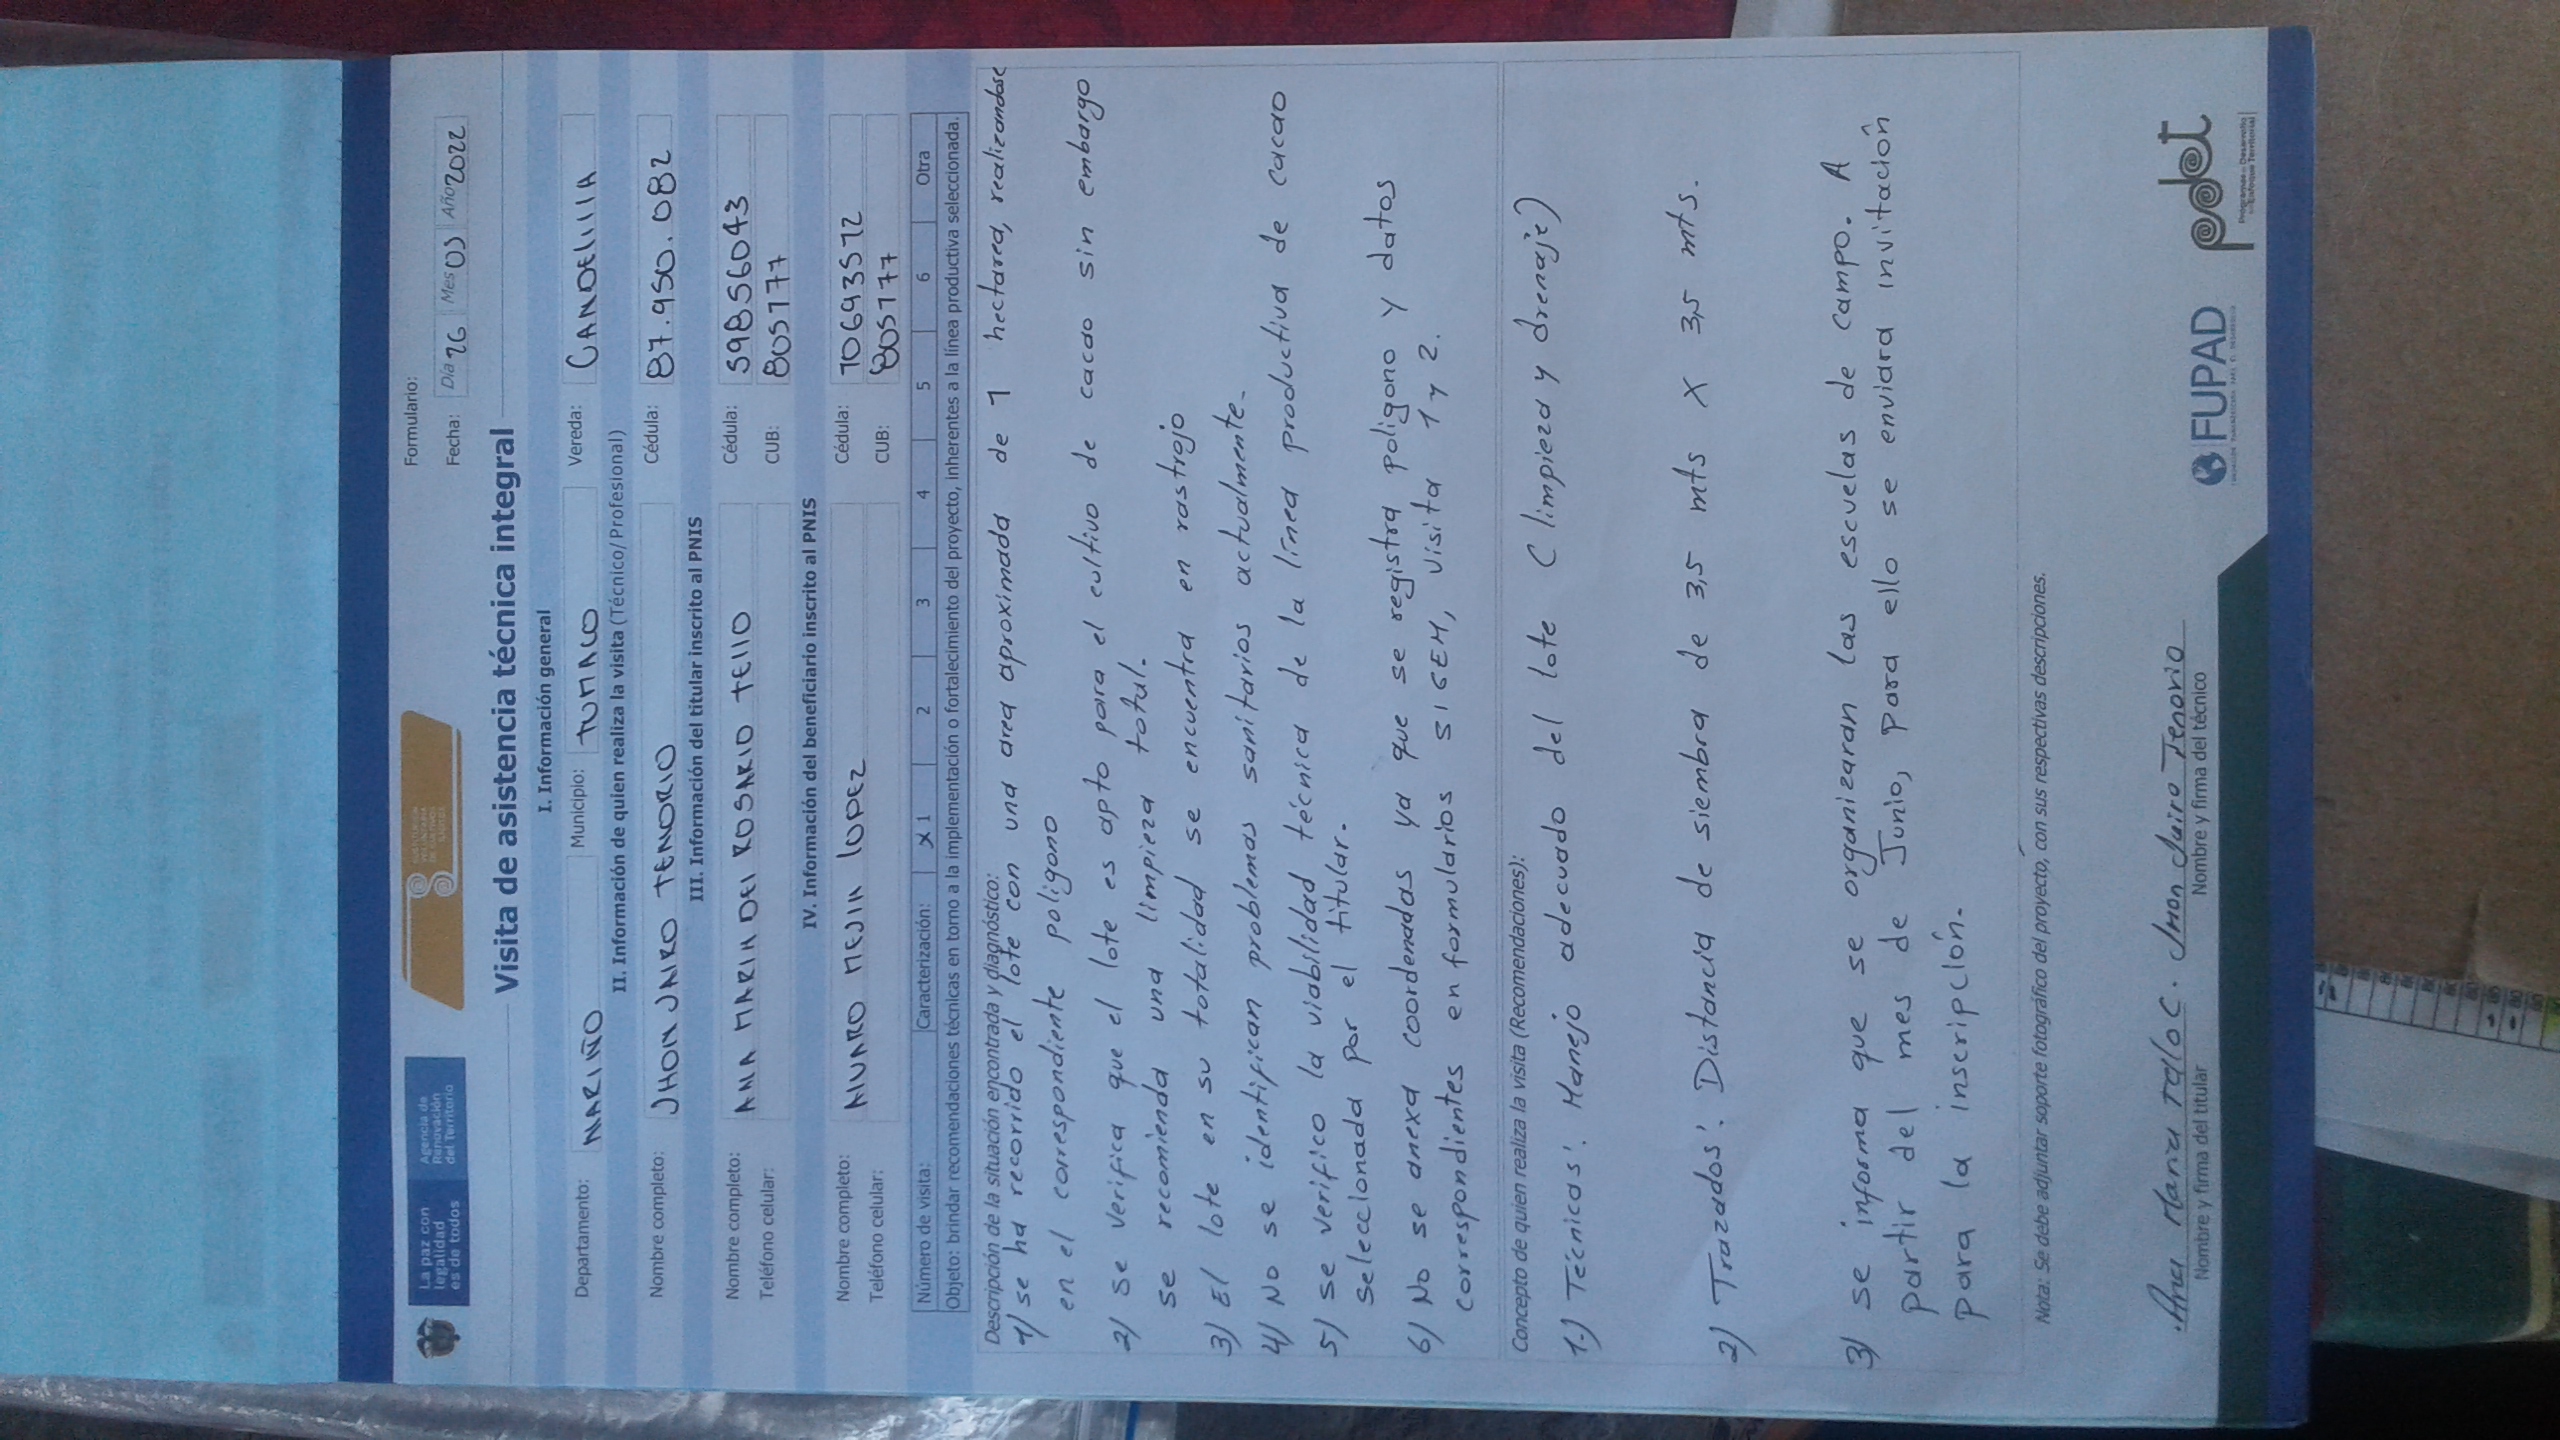 La paz con
legalidad
es de todos
Agencia de
Renovación
del Territorio
SUSTITUCIÓN
VOLUNTARIA
DE CULTIVOS
ILÍCITOS
Formulario:
Fecha: Día 26 Mes 03 Año 2022
Visita de asistencia técnica integral
I. Información general
Departamento: NARIÑO Municipio: TUMACO Vereda: CANDELILLA
II. Información de quien realiza la visita (Técnico/Profesional)
Nombre completo: JHON JAIRO TENORIO Cédula: 87.950.082
III. Información del titular inscrito al PNIS
Nombre completo: ANA MARIA DEL ROSARIO TELLO Cédula: 59856043
Teléfono celular: CUB: 805177
IV. Información del beneficiario inscrito al PNIS
Nombre completo: ALVARO MEJIA LOPEZ Cédula: 10693572
Teléfono celular: CUB: 805177
Número de visita: Caracterización: X 1 2 3 4 5 6 Otra
Objeto: brindar recomendaciones técnicas en torno a la implementación o fortalecimiento del proyecto, inherentes a la línea productiva seleccionada.
Descripción de la situación encontrada y diagnóstico:
1) se ha recorrido el lote con una area aproximada de 1 hectarea, realizandose
en el correspondiente poligono
2) se verifica que el lote es apto para el cultivo de cacao sin embargo
se recomienda una limpieza total.
3) El lote en su totalidad se encuentra en rastrojo
4) No se identifican problemas sanitarios actualmente.
5) se verifico la viabilidad técnica de la línea productiva de cacao
seleccionada por el titular.
6) No se anexa coordenadas ya que se registra poligono y datos
correspondientes en formularios SIGEM, visita 1 y 2.
Concepto de quien realiza la visita (Recomendaciones):
1.) Técnicas: Manejo adecuado del lote (limpieza y drenaje)
2) Trazados: Distancia de siembra de 3,5 mts X 3,5 mts.
3) se informa que se organizaran las escuelas de campo. A
partir del mes de Junio, para ello se enviara invitación
para la inscripción.
Nota: Se debe adjuntar soporte fotográfico del proyecto, con sus respectivas descripciones.
Ana Maria Tello C. Jhon Jairo Tenorio
Nombre y firma del titular Nombre y firma del técnico
FUPAD
pdet
Programas de Desarrollo
con Enfoque Territorial